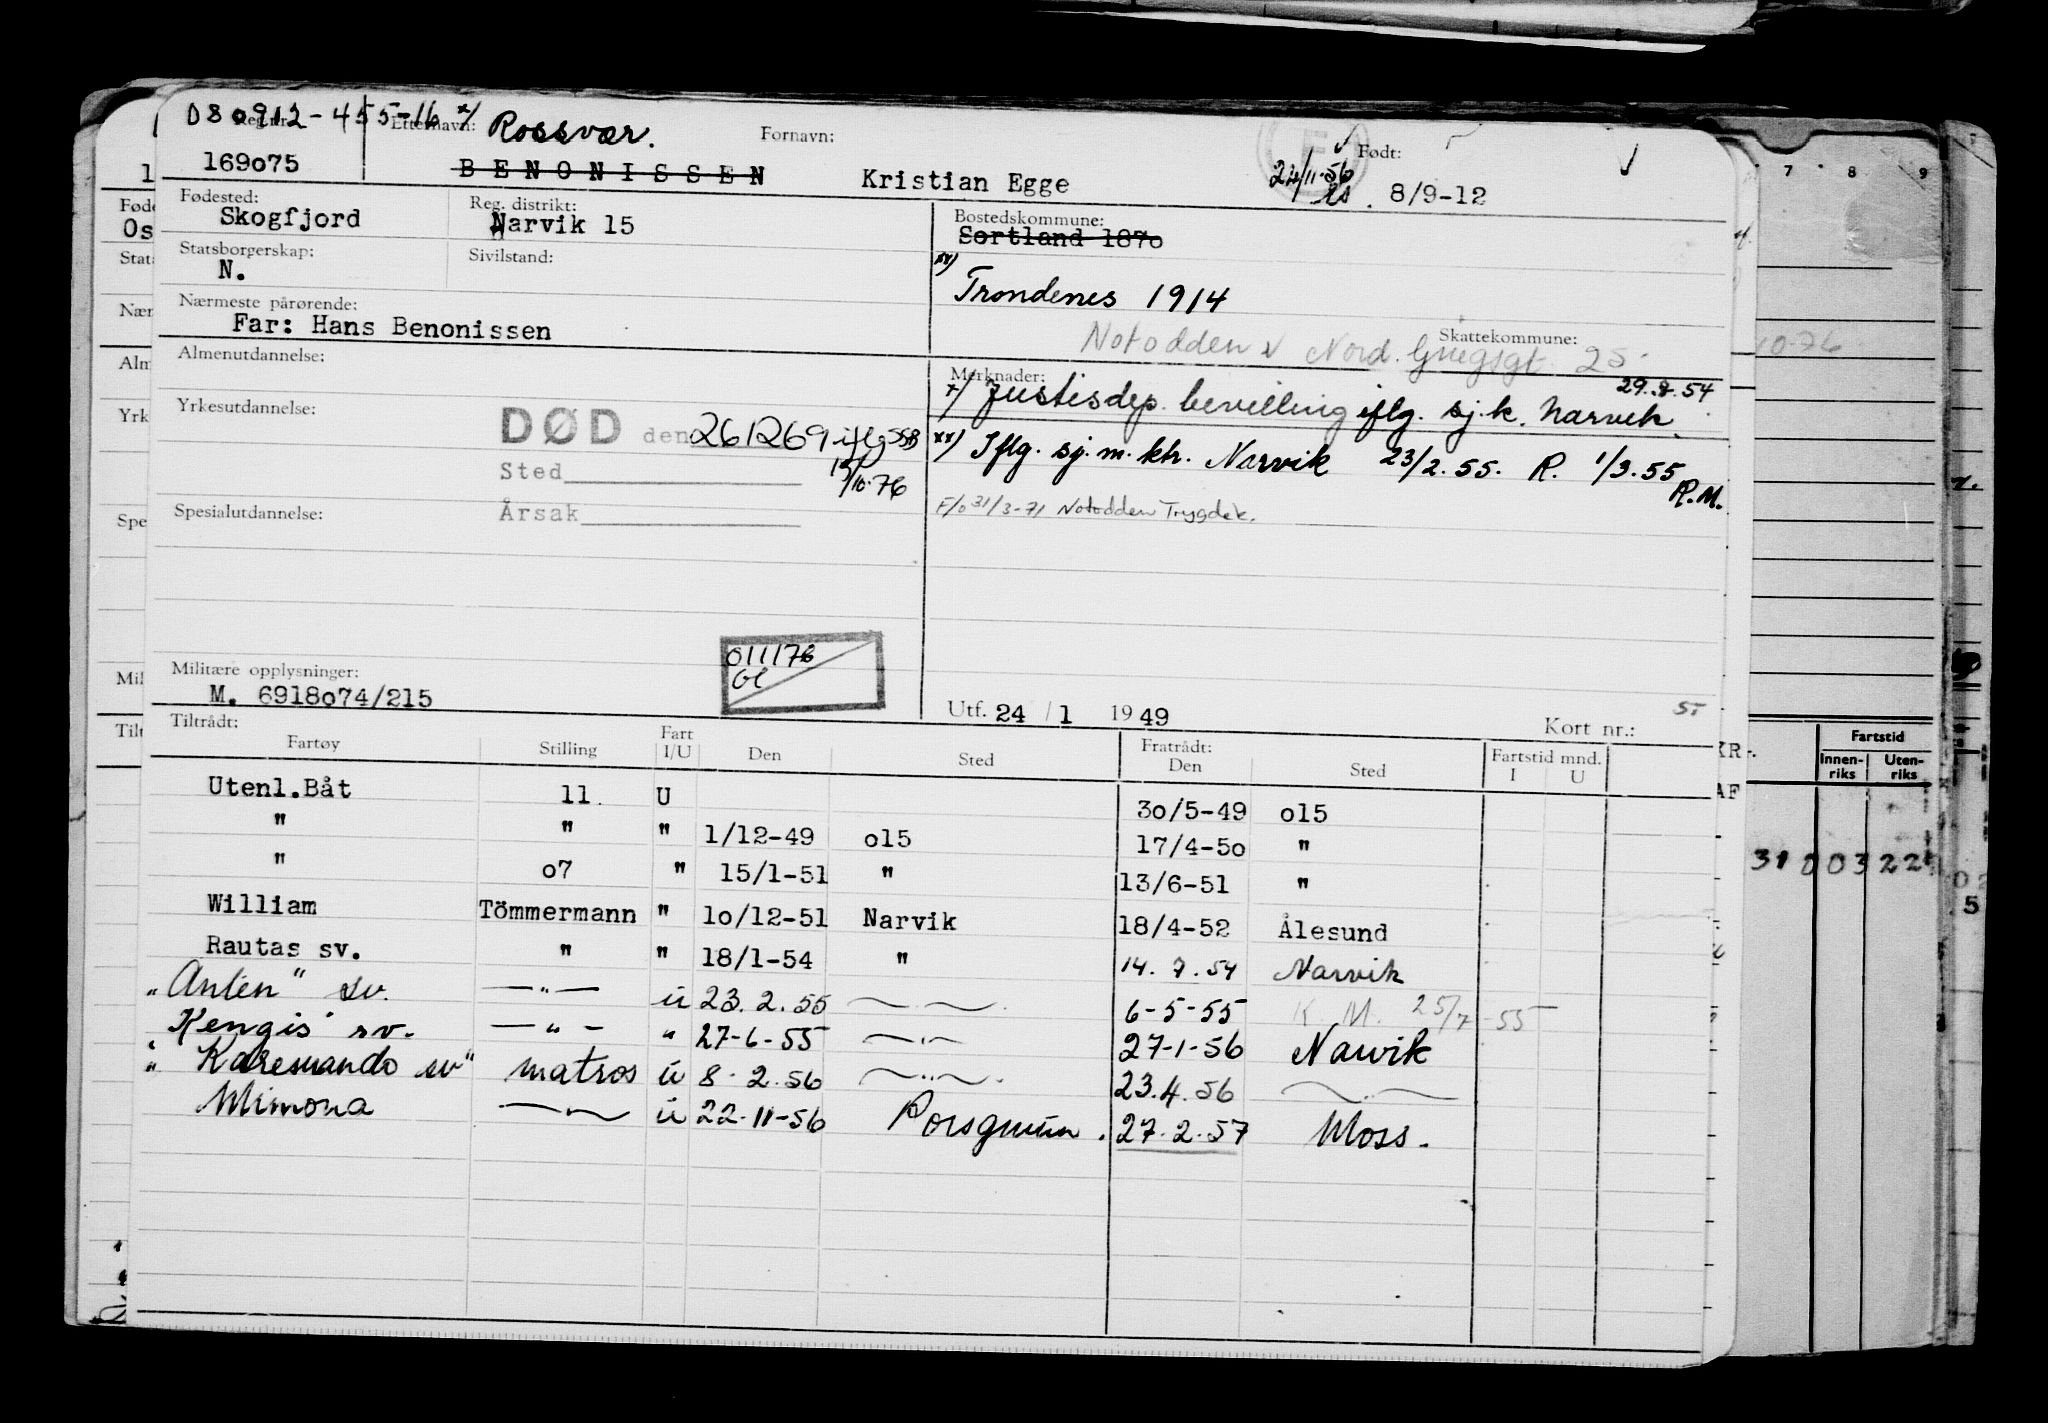 D80912-455-16 x/ Rossvær.
Reg.nr. Etternavn: Fornavn: Født:
169o75 BENONISSEN Kristian Egge 22/11-56 8/9-12
Fødested: Reg. distrikt: Bostedskommune:
Skogfjord Narvik 15 Sortland 187o
Statsborgerskap: Sivilstand:
N.
xx) Trondenes 1914
Nærmeste pårørende:
Far: Hans Benonissen
Skattekommune:
Notodden v Nord. Griegsgt 25
Almenutdannelse:
Merknader: 29.8.54
x/ Justisdep. bevilling iflg. sj.k. Narvik.
Yrkesutdannelse:
DØD den 261269 iflg SSB
15/10-76
xx) Iflg. sj.m.ktr. Narvik 23/2.55. R. 1/3.55
R.M.
Sted
F/o 31/3-71 Notodden Trygdek.
Spesialutdannelse:
Årsak
011176
Militære opplysninger:
M. 6918o74/215
Utf. 24 / 1 1949 Kort nr.: 5
Tiltrådt: Fratrådt:
Fartøy Stilling Fart I/U Den Sted Den Sted Fartstid mnd. I U
Utenl.Båt 11 U 3o/5-49 o15
" " " 1/12-49 o15 17/4-5o "
" o7 " 15/1-51 " 13/6-51 "
William Tömmermann " 1o/12-51 Narvik 18/4-52 Ålesund
Rautas sv. " " 18/1-54 " 14.7.54 Narvik
"Anten" sv. —"— u 23.2.55 —"— 6-5-55 K.M. 25/7-55
Kengis" sv. —"— " 27-6-55 —"— 27-1-56 Narvik
"Karesuando sv" matros u 8.2.56 —"— 23.4.56 —"—
Mimona —"— u 22-11-56 Porsgrunn. 27.2.57 Moss.
7 8 9
10-76
Fartstid
Innen-
riks
Uten-
riks